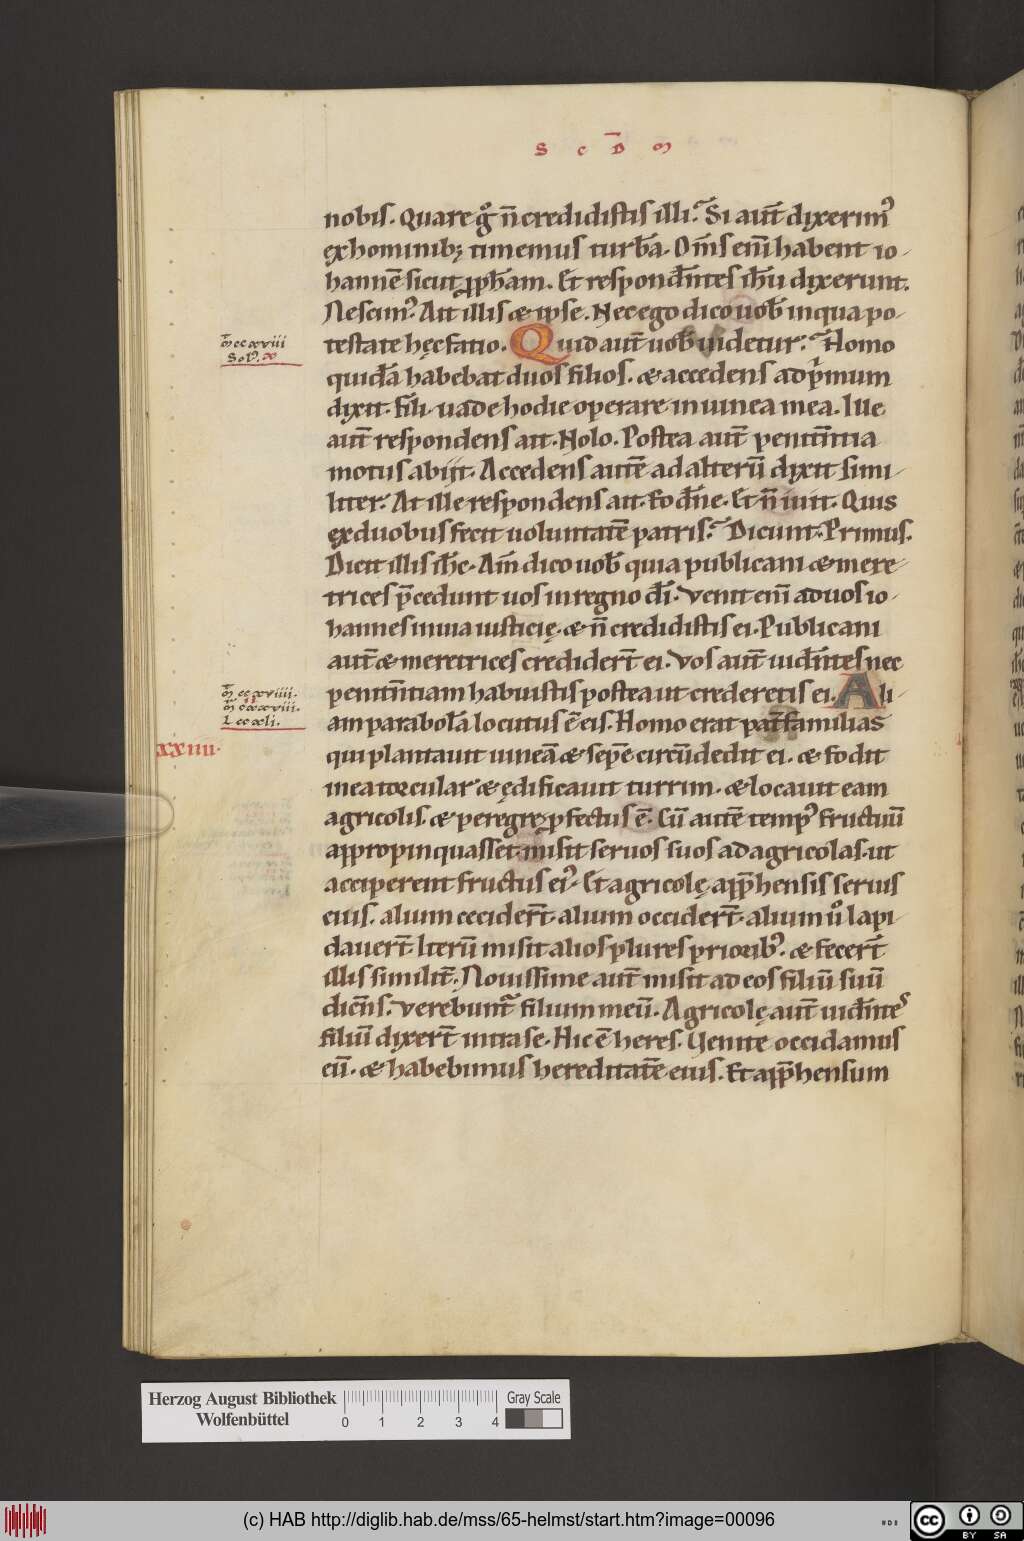 S c D̄ m
nobis. Quare gͦ n̄ credidistis illi. Si aut̄ dixerim᾽
ex hominib; timemus turbā. Om̄s eni habent io-
hannē sicut ꝓph̄am. Et respondn̄tes ih̄u dixerunt.
Nescim᾽. Ait illis & ipse. Nec ego dico uob̄ in qua po-
testate hęc fatio. Quid aut̄ uob̄ uidetur. Homo
quidā habebat duos filios. & accedens ad pͥmum
dixit. fili. uade hodie operare in uinea mea. Ille
aut̄ respondens ait. Nolo. Postea aut̄ penitn̄tia
motus abijt. Accedens autē ad alterū dixit simi-
liter. At ille respondens ait. Eo dn̄e. Et n̄ iuit. Quis
ex duobus fecit uoluntatē patris. Dicunt. Primus.
Dicit illis ih̄c. Am̄ dico uob̄ quia publicani & mere-
trices p̄cedunt uos in regno dī. Venit eni ad uos io-
hannes in uia iusticię. & n̄ credidistis ei. Publicani
aut̄ & meretrices credider̄t ei. Vos aut̄ uidn̄tes nec
penitn̄tiam habuistis postea ut crederetis ei. Ali-
am parabolā locutus ē eis. Homo erat pat̄familias
qui plantauit uineā & sepē circūdedit ei. & fodit
in ea torcular & ędificauit turrim. & locauit eam
agricolis. & peregre ꝓfectus ē. Cū autē temp᾽ fructuū
appropinquasset. misit seruos suos ad agricolas. ut
acciperent fructus ei᾽. Et agricolę app̄hensis seruis
eius. alium cecider̄t. alium occider̄t. alium uͦ lapi-
dauer̄t. Iterū misit alios plures priorib᾽. & fecer̄t
illis similit̄. Nouissime aut̄ misit ad eos filiū suū
dicn̄s. Verebunt᾽ filium meū. Agricolę aut̄ uidn̄tes
filiū dixer̄t intra se. Hic ē heres. Venite occidamus
eū. & habebimus hereditatē eius. Et app̄hensum
m̄ ccxviii
Sol᾽. x
m̄ ccxviiii.
m̄ cxxviii.
L ccxli.
xxiiii.
Herzog August Bibliothek
Wolfenbüttel
0 1 2 3 4
Gray Scale
(c) HAB http://diglib.hab.de/mss/65-helmst/start.htm?image=00096
cc BY SA